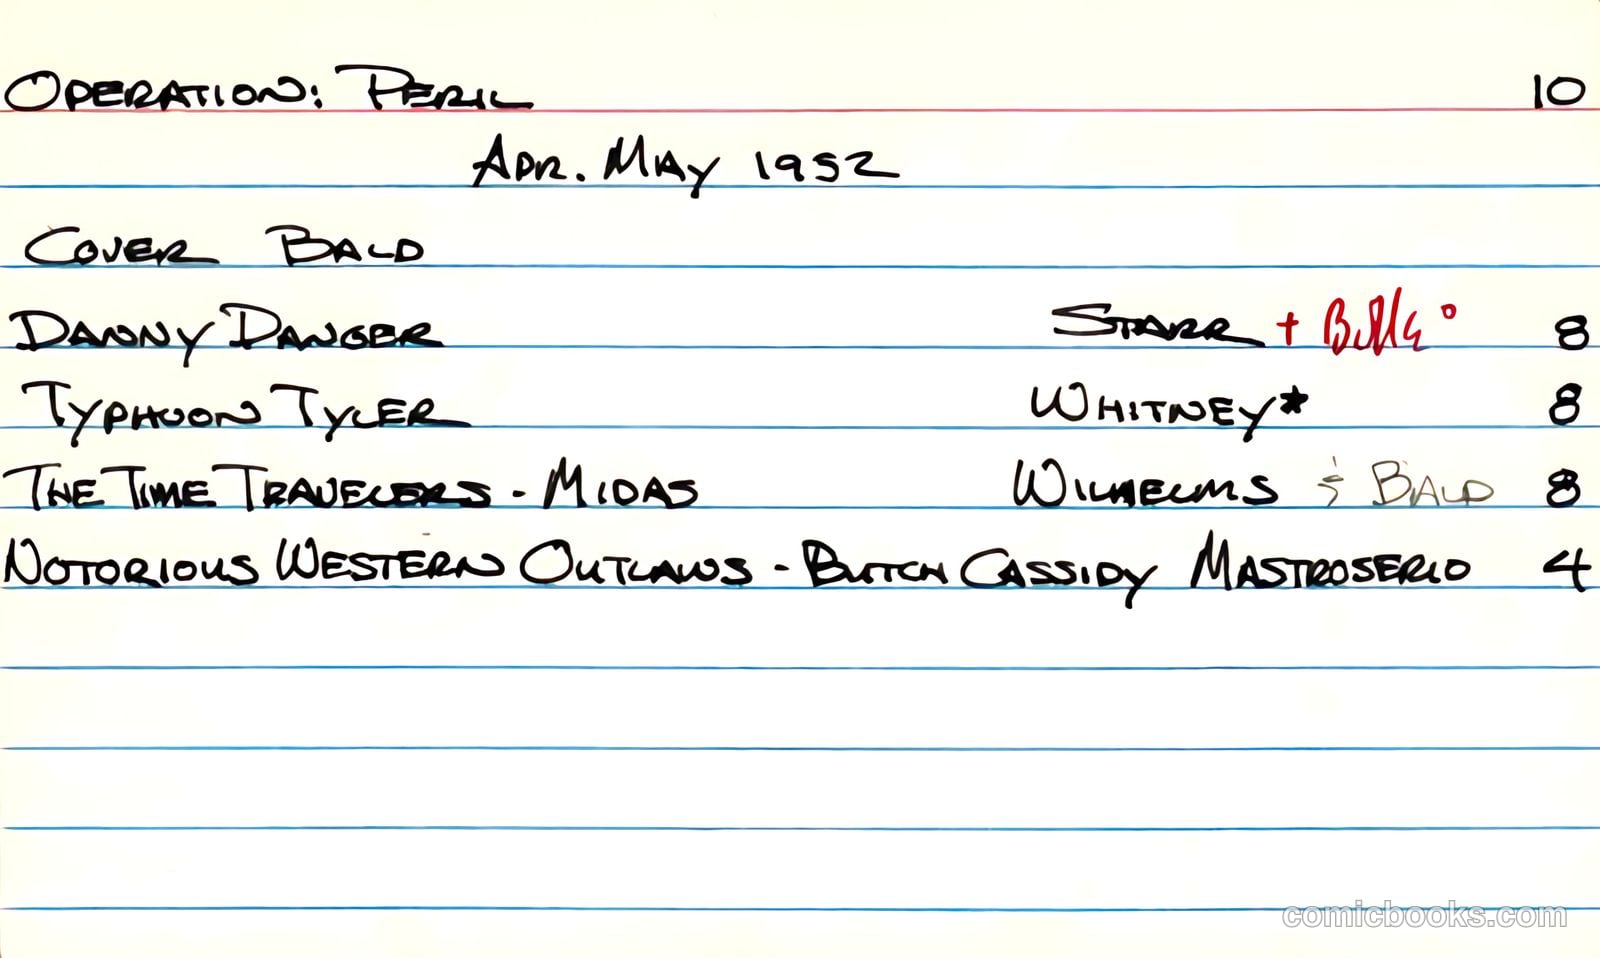 OPERATION: PERIL 10
APR. MAY 1952
COVER BALD
DANNY DANGER STARR + 8
TYPHOON TYLER WHITNEY* 8
THE TIME TRAVELERS - MIDAS WILHELMS & BALD 8
NOTORIOUS WESTERN OUTLAWS - BUTCH CASSIDY MASTROSERIO 4
comicbooks.com